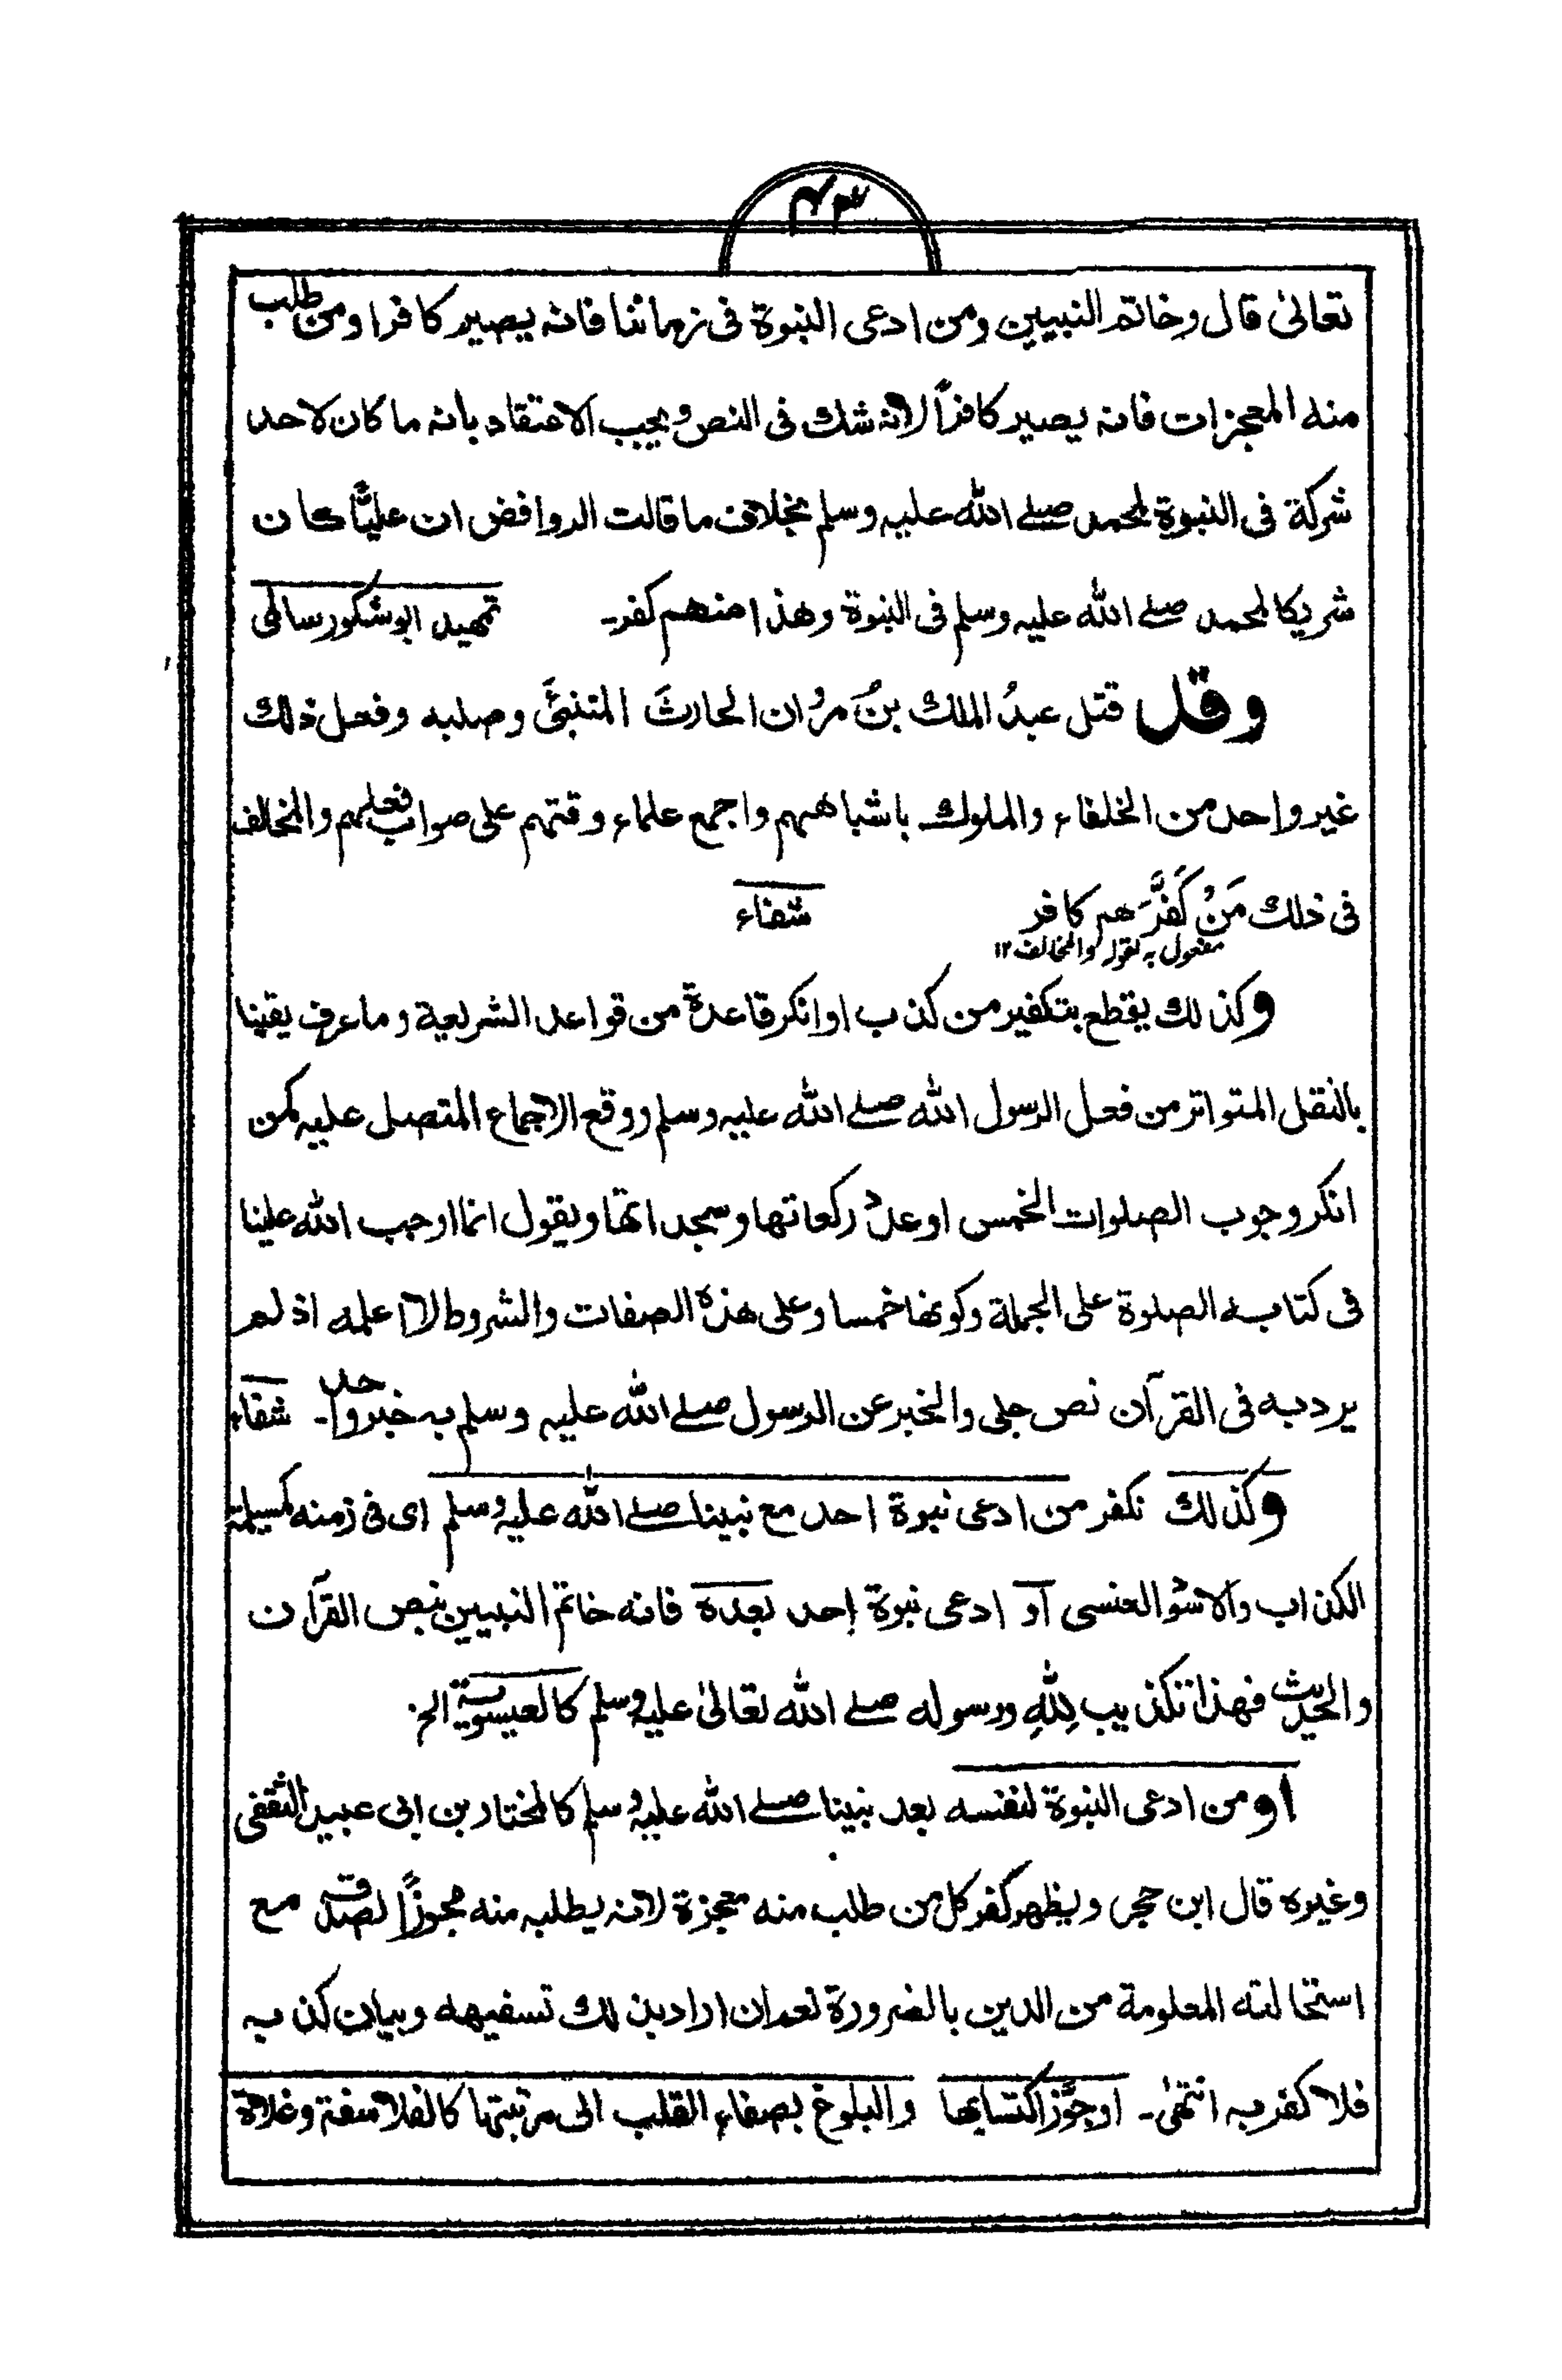 ۴۳
تعالىٰ قال وخاتم النبيين ومن ادعى النبوة فى زماننا فانه يصير كافرا ومن طلب
منه المعجزات فانه يصير كافراً لانه شك فى النص ويجب الاعتقاد بانه ما كان لاحد
شركة فى النبوة لمحمد صلے الله عليه وسلم بخلاف ما قالت الروافض ان عليًّا كان
شريكا لمحمد صلے الله عليه وسلم فى النبوة وهذا منهم كفر۔ تمهيد ابو شكور سالمى
وقد قتل عبدُ الملك بنُ مرْوان الحارثَ المتنبئَّ وصلبه وفعل ذلك
غير واحد من الخلفاء والملوك باشباههم واجمع علماء وقتهم على صواب فعلهم والمخالف
فى ذلك مَنْ كَفَّرَهم كافر شفاء
مفعول به لقوله والمخالف ١٢
وكذلك يقطع بتكفير من كذب او انكر قاعدة من قواعد الشريعة وما عرف يقينا
بالنقل المتواتر من فعل الرسول الله صلے الله عليه وسلم ووقع الاجماع المتصل عليه كمن
انكر وجوب الصلوات الخمس او عدد ركعاتها وسجداتها ويقول انما اوجب الله علينا
فى كتابه الصلوة على الجملة وكونها خمسا وعلى هذه الصفات والشروط لا اعلمه اذ لم
يرد به فى القرآن نص جلى والخبر عن الرسول صلے الله عليه وسلم به خبر واحد۔ شفاء
وكذلك نكفر من ادعى نبوة احد مع نبينا صلے الله عليه وسلم اى فى زمنه كمسيلمة
الكذاب والاسود العنسى او ادعى نبوة احد بعده فانه خاتم النبيين بنص القرآن
والحديث فهذا تكذيب لِلّٰهِ ورسوله صلے الله تعالىٰ عليه وسلم كالعيسوية الخ
او من ادعى النبوة لنفسه بعد نبينا صلے الله عليه وسلم كالمختار بن ابى عبيد الثقفى
وغيره قال ابن حجر ويظهر كفر كل من طلب منه معجزة لانه يطلبه منه مجوزاً لصدقه مع
استحالته المعلومة من الدين بالضرورة نعم ان اراد بذلك تسفيهه وبيان كذبه
فلا كفر به انتهىٰ۔ او جوَّز اكتسابها والبلوغ بصفاء القلب الى مرتبتها كالفلاسفة وغلاة